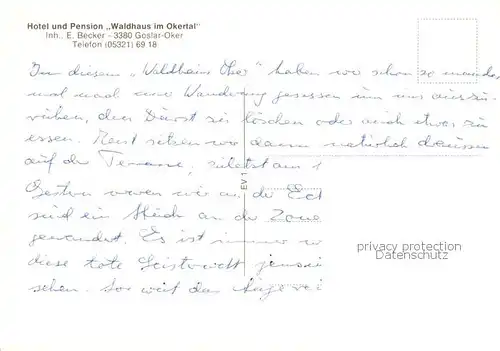 Hotel und Pension „Waldhaus im Okertal"
Inh., E. Becker - 3380 Goslar-Oker
Telefon (05321) 69 18
In diesem „Waldhaus Oker" haben wir schon so manches
mal nach einer Wanderung gesessen um uns auszu-
ruhen, den Durst zu löschen oder auch etwas zu
essen. Meist sitzen wir dann natürlich draussen
auf der Terrasse, zuletzt am 1
Gestern waren wir an der Eck
sind ein Stück an der Zone
gewandert. Es ist immer w
diese tote Geisterwelt jensei
sehen. So weit das Auge rei
EV 1
privacy protection
Datenschutz